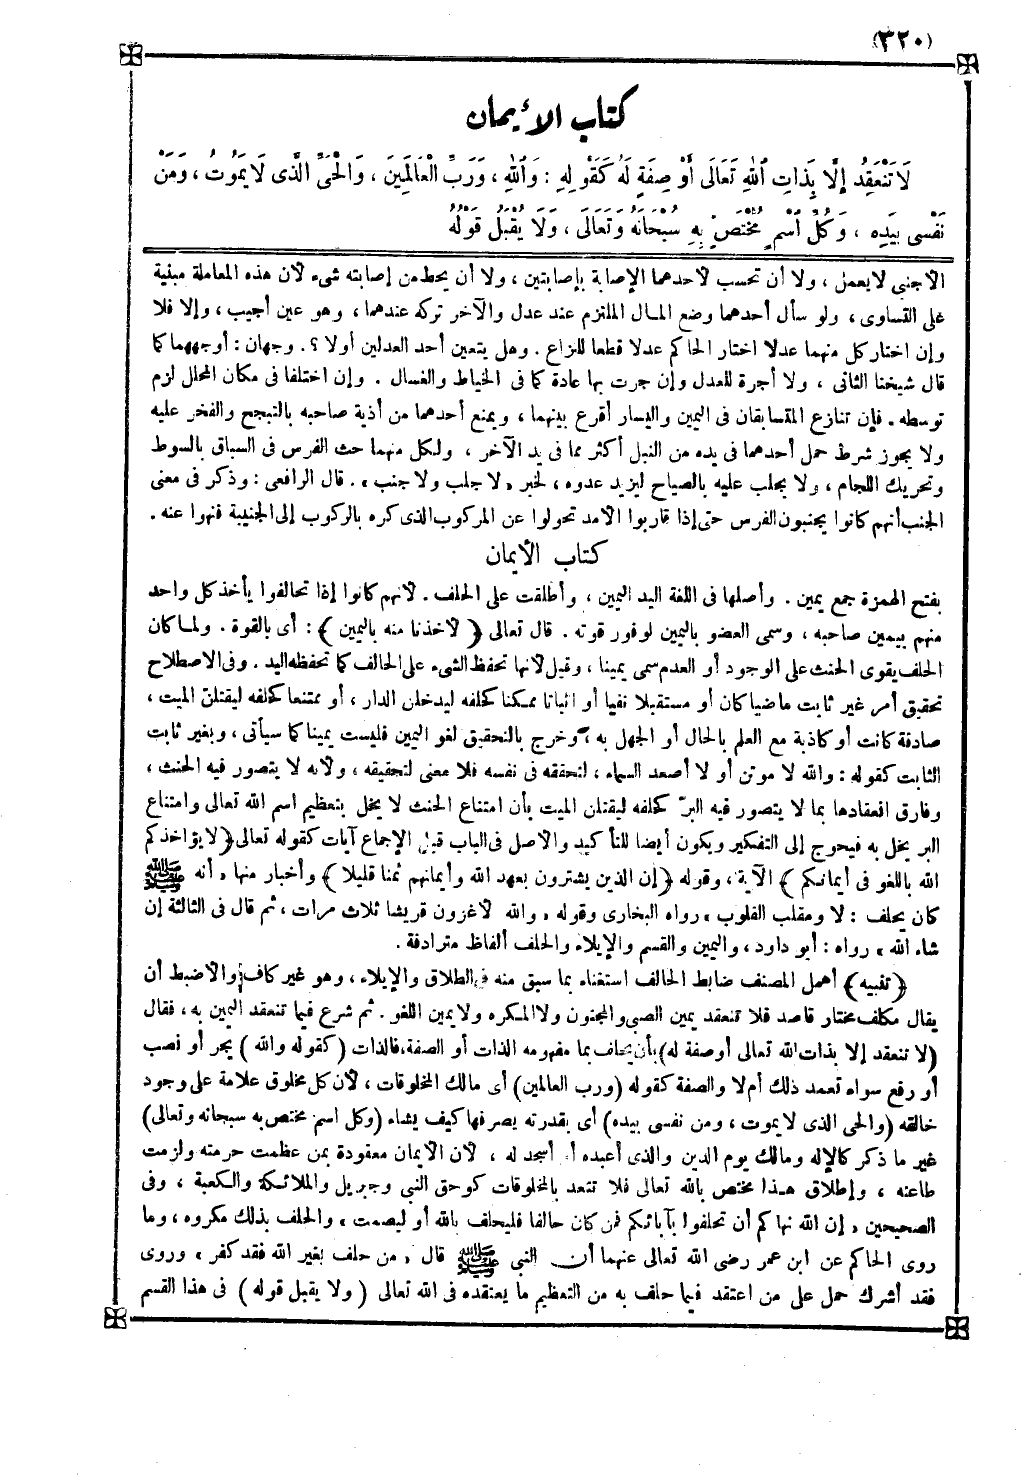 (٣٢٠)
كتاب الأيمان
لَا تَنْعَقِدُ إلَّا بِذَاتِ ٱللهِ تَعَالَى أَوْ صِفَةٍ لَهُ كَقَوْلِهِ : وَٱللهِ ، وَرَبِّ الْعَالَمِينَ ، وَالْحَىِّ الَّذِى لَا يَمُوتُ ، وَمَنْ
نَفْسِى بِيَدِهِ ، وَكُلِّ ٱسْمٍ مُخْتَصٍّ بِهِ سُبْحَانَهُ وَتَعَالَى ، وَلَا يُقْبَلُ قَوْلُهُ
الأجنبى لايعمل ، ولا أن تحسب لأحدهما الإصابة بإصابتين ، ولا أن يحط من إصابته شىء لأن هذه المعاملة مبنية
على التساوى ، ولو سأل أحدهما وضع المال الملتزم عند عدل والآخر تركه عندهما ، وهو عين أجيب ، وإلا فلا
وإن اختار كل منهما عدلا اختار الحاكم عدلا قطعا للنزاع . وهل يتعين أحد العدلين أولا ؟ . وجهان : أوجههما كما
قال شيخنا الثانى ، ولا أجرة للعدل وإن جرت بها عادة كما فى الخياط والغسال . وإن اختلفا فى مكان المحلل لزم
توسطه . فإن تنازع المتسابقان فى اليمين واليسار أقرع بينهما ، ويمنع أحدهما من أذية صاحبه بالتبجح والفخر عليه
ولا يجوز شرط حمل أحدهما فى يده من النبل أكثر مما فى يد الآخر ، ولكل منهما حث الفرس فى السباق بالسوط
وتحريك اللجام ، ولا يجلب عليه بالصياح ليزيد عدوه ، لخبر « لا جلب ولا جنب » . قال الرافعى : وذكر فى معنى
الجنب أنهم كانوا يجنبون الفرس حتى إذا قاربوا الأمد تحولوا عن المركوب الذى كره بالركوب إلى الجنيبة فنهوا عنه .
كتاب الأيمان
بفتح الهمزة جمع يمين . وأصلها فى اللغة اليد اليمين ، وأطلقت على الحلف . لأنهم كانوا إذا تحالفوا يأخذ كل واحد
منهم بيمين صاحبه ، وسمى العضو باليمين لوفور قوته . قال تعالى ( لأخذنا منه باليمين ) : أى بالقوة . ولما كان
الحلف يقوى الحنث على الوجود أو العدم سمى يمينا ، وقيل لأنها تحفظ الشىء على الحالف كما تحفظه اليد . وفى الاصطلاح
تحقيق أمر غير ثابت ماضيا كان أو مستقبلا نفيا أو اثباتا ممكنا كحلفه ليدخلن الدار ، أو ممتنعا كحلفه ليقتلن الميت ،
صادقة كانت أو كاذبة مع العلم بالحال أو الجهل به ، وخرج بالتحقيق لغو اليمين فليست يمينا كما سيأتى ، وبغير ثابت
الثابت كقوله : والله لا موتن أو لا أصعد السماء ، لتحققه فى نفسه فلا معنى لتحقيقه ، ولأنه لا يتصور فيه الحنث ،
وفارق انعقادها بما لا يتصور فيه البرّ كحلفه ليقتلن الميت بأن امتناع الحنث لا يخل بتعظيم اسم الله تعالى وامتناع
البر يخل به فيحوج إلى التفكير ويكون أيضا للتأكيد والأصل فى الباب قبل الإجماع آيات كقوله تعالى ( لا يؤاخذكم
الله باللغو فى أيمانكم ) الآية ، وقوله ( إن الذين يشترون بعهد الله وأيمانهم ثمنا قليلا ) وأخبار منها « أنه ﷺ
كان يحلف : لا ومقلب القلوب » رواه البخارى وقوله « والله لأغزون قريشا ثلاث مرات ، ثم قال فى الثالثة إن
شاء الله » رواه : أبو داود ، واليمين والقسم والإيلاء والحلف ألفاظ مترادفة .
( تنبيه ) أهمل المصنف ضابط الحالف استغناء بما سبق منه فى الطلاق والإيلاء ، وهو غير كاف والأضبط أن
يقال مكلف مختار قاصد فلا تنعقد يمين الصبى والمجنون ولا المكره ولا يمين اللغو . ثم شرع فيما تنعقد اليمين به ، فقال
(لا تنعقد إلا بذات الله تعالى أو صفة له) بأن يحلف بما مفهومه الذات أو الصفة ، فالذات ( كقوله والله ) بجر أو نصب
أو رفع سواء تعمد ذلك أم لا والصفة كقوله ( ورب العالمين ) أى مالك المخلوقات ، لأن كل مخلوق علامة على وجود
خالقه ( والحى الذى لا يموت ، ومن نفسى بيده ) أى بقدرته يصرفها كيف يشاء ( وكل اسم مختص به سبحانه وتعالى)
غير ما ذكر كالإله ومالك يوم الدين والذى أعبده أو أسجد له ، لأن الأيمان معقودة بمن عظمت حرمته ولزمت
طاعته ، وإطلاق هذا مختص بالله تعالى فلا تنعقد بالمخلوقات كوحق النبى وجبريل والملائكة والكعبة ، وفى
الصحيحين « إن الله نهاكم أن تحلفوا بآبائكم فمن كان حالفا فليحلف بالله أو ليصمت » والحلف بذلك مكروه ، وما
روى الحاكم عن ابن عمر رضى الله تعالى عنهما أن النبى ﷺ قال « من حلف بغير الله فقد كفر » وروى
فقد أشرك حمل على من اعتقد فيما حلف به من التعظيم ما يعتقده فى الله تعالى ( ولا يقبل قوله ) فى هذا القسم